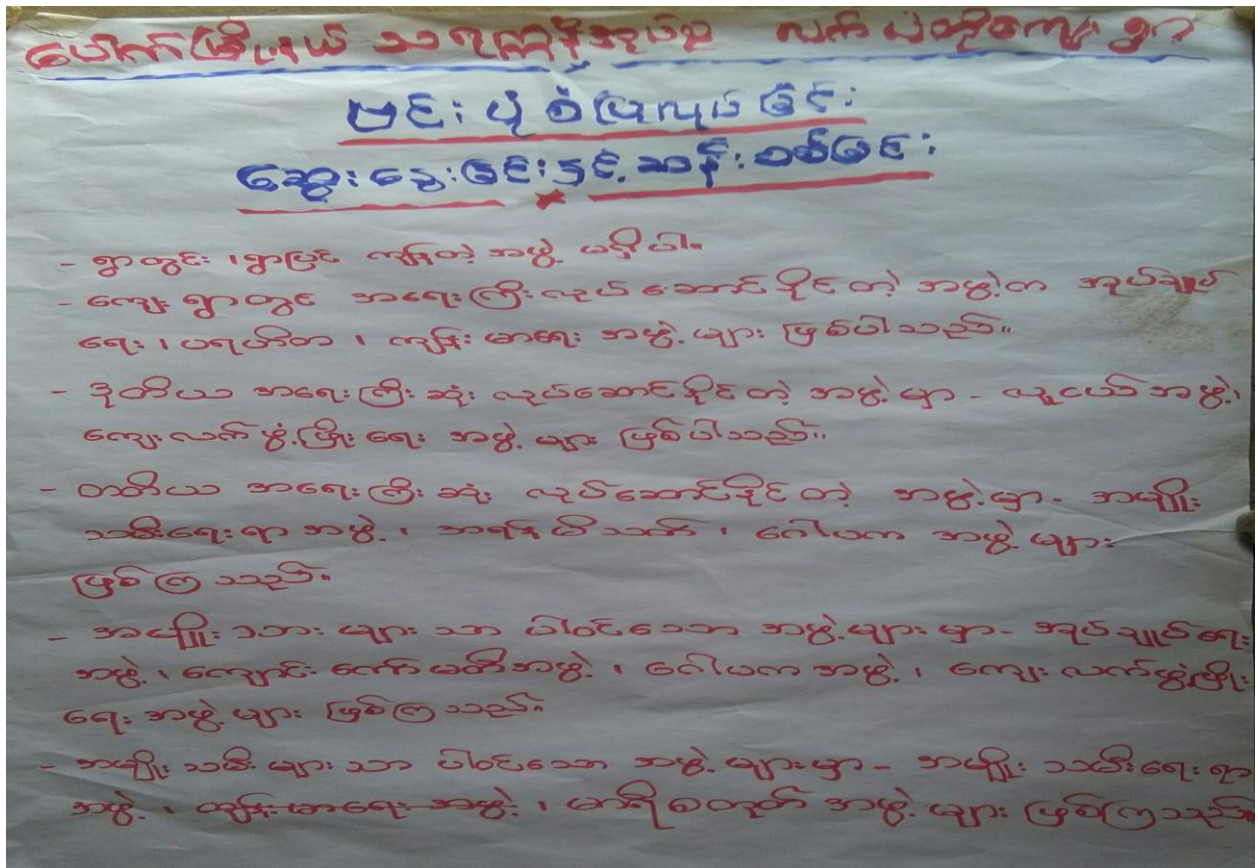 ပေါက်မြို့နယ် သရက္ကန်အုပ်စု လက်ပံတိုကျေးရွာ
ဗင်းပုံစံပြုလုပ်ခြင်း
ဆွေးနွေးခြင်းနှင့် ဆန်းစစ်ခြင်း
- ရွာတွင်း ၊ ရွာပြင် ကျန်တဲ့ အဖွဲ့ မရှိပါ။
- ကျေးရွာတွင် အရေးကြီးလုပ်ဆောင်နိုင်တဲ့ အဖွဲ့က အုပ်ချုပ်
ရေး ၊ ပရဟိတ ၊ ကျန်းမာရေး အဖွဲ့ များ ဖြစ်ပါသည်။
- ဒုတိယ အရေးကြီးဆုံး လုပ်ဆောင်နိုင်တဲ့ အဖွဲ့မှာ - လူငယ်အဖွဲ့၊
ကျေးလက်ဖွံ့ဖြိုးရေး အဖွဲ့ များ ဖြစ်ပါသည်။
- တတိယ အရေးကြီးဆုံး လုပ်ဆောင်နိုင်တဲ့ အဖွဲ့မှာ - အမျိုး
သမီးရေးရာအဖွဲ့ ၊ အရန်မီးသတ် ၊ ဂေါပက အဖွဲ့ များ
ဖြစ်ကြသည်။
- အမျိုးသားများသာ ပါဝင်သော အဖွဲ့များမှာ - အုပ်ချုပ်ရေး
အဖွဲ့ ၊ ကျောင်းကော်မတီအဖွဲ့ ၊ ဂေါပကအဖွဲ့ ၊ ကျေးလက်ဖွံ့ဖြိုး
ရေး အဖွဲ့ များ ဖြစ်ကြသည်။
- အမျိုးသမီးများသာ ပါဝင်သော အဖွဲ့ များမှာ - အမျိုးသမီးရေးရာ
အဖွဲ့ ၊ ကျန်းမာရေး အဖွဲ့ ၊ မာရီစတုတ် အဖွဲ့ များ ဖြစ်ကြသည်။